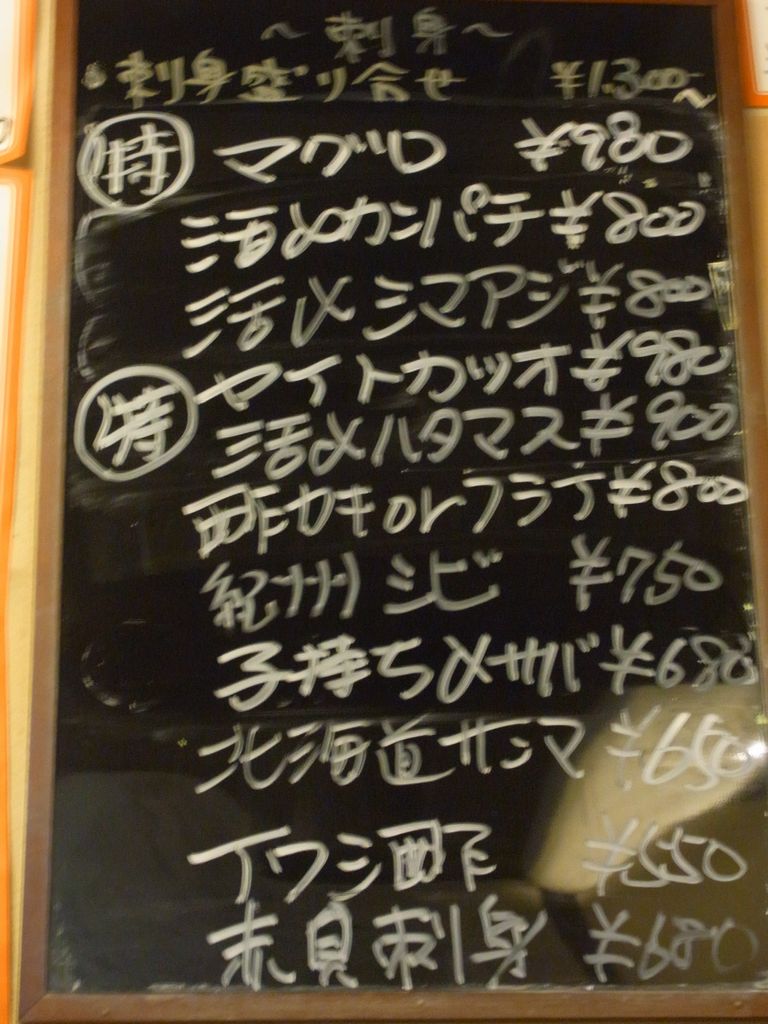 〜刺身〜
・刺身盛り合せ ¥1.300〜
特 マグロ ¥980
活〆カンパチ ¥800
活〆シマアジ ¥800
特 ヤイトカツオ ¥980
活〆ハタマス ¥900
酢カキorフライ ¥800
紀州シビ ¥750
子持ち〆サバ ¥680
北海道サンマ ¥650
イワシ酢 ¥550
赤貝刺身 ¥680